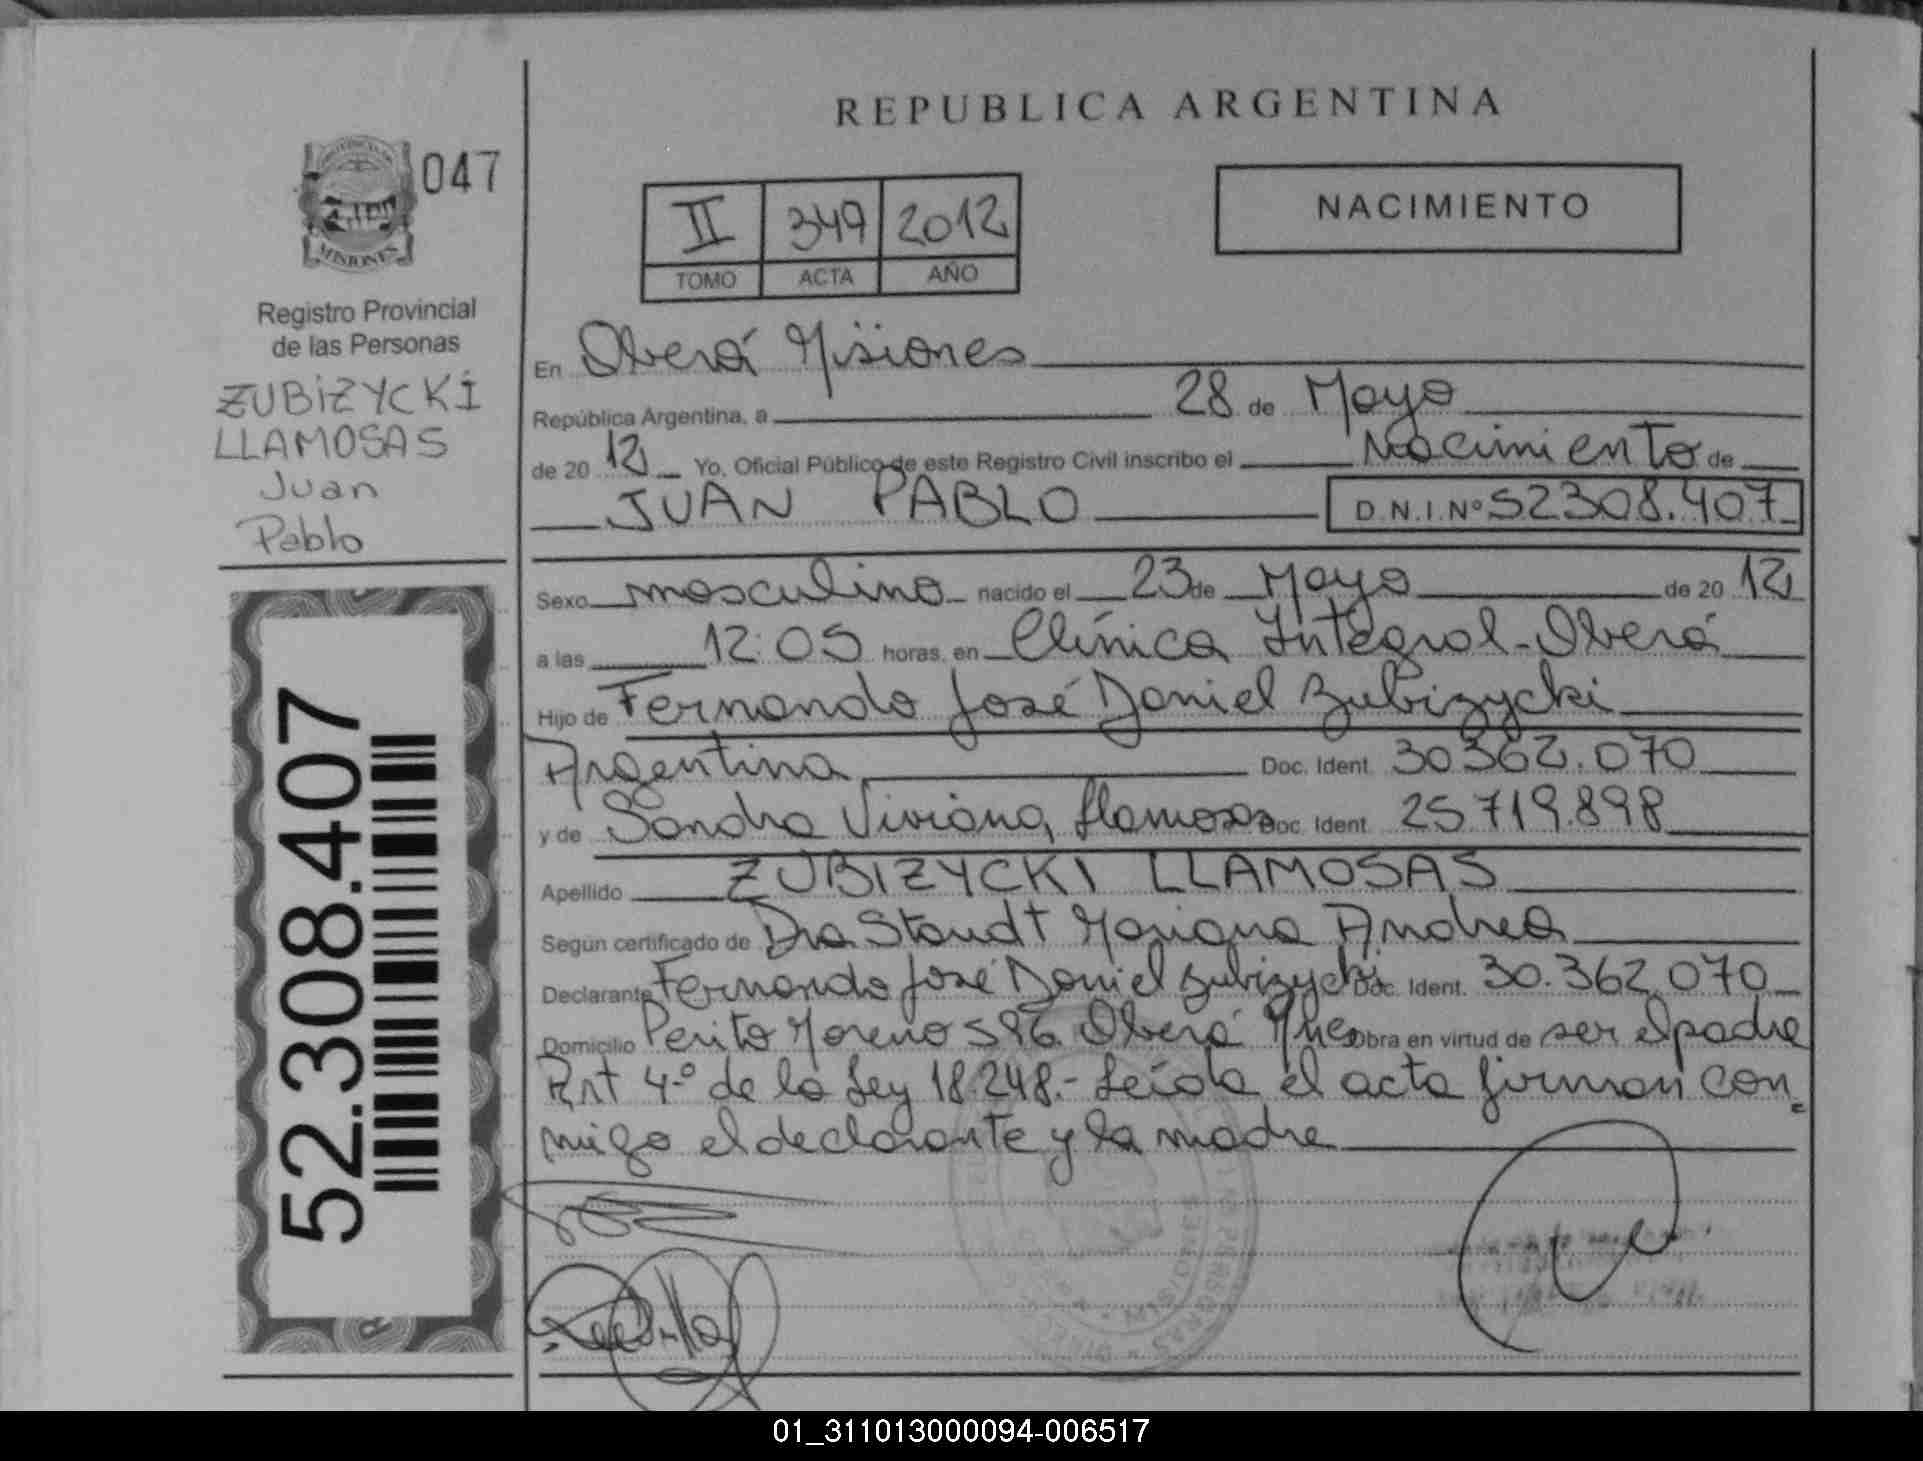 REPUBLICA ARGENTINA
MISIONES
047
II 349 2012
TOMO ACTA AÑO
NACIMIENTO
Registro Provincial
de las Personas
ZUBIZYCKI
LLAMOSAS
Juan
Pablo
52.308.407
En Oberá Misiones
República Argentina, a 28 de Mayo
de 20 12 Yo, Oficial Público de este Registro Civil inscribo el Nacimiento de
JUAN PABLO D.N.I.Nº 52308.407
Sexo masculino nacido el 23 de Mayo de 20 12
a las 12:05 horas, en Clínica Integral-Oberá
Hijo de Fernando José Daniel Zubizycki
Argentina Doc. Ident. 30362.070
y de Sandra Viviana Llamosas Doc. Ident. 25719.898
Apellido ZUBIZYCKI LLAMOSAS
Según certificado de Dra Staudt Mariana Andrea
Declarante Fernando José Daniel Zubizycki Doc. Ident. 30.362.070
Domicilio Perito Moreno 596 Oberá Mnes Obra en virtud de ser el padre
Art 4º de la Ley 18.248.- Leída el acta firman con
migo el declarante y la madre
01_311013000094-006517